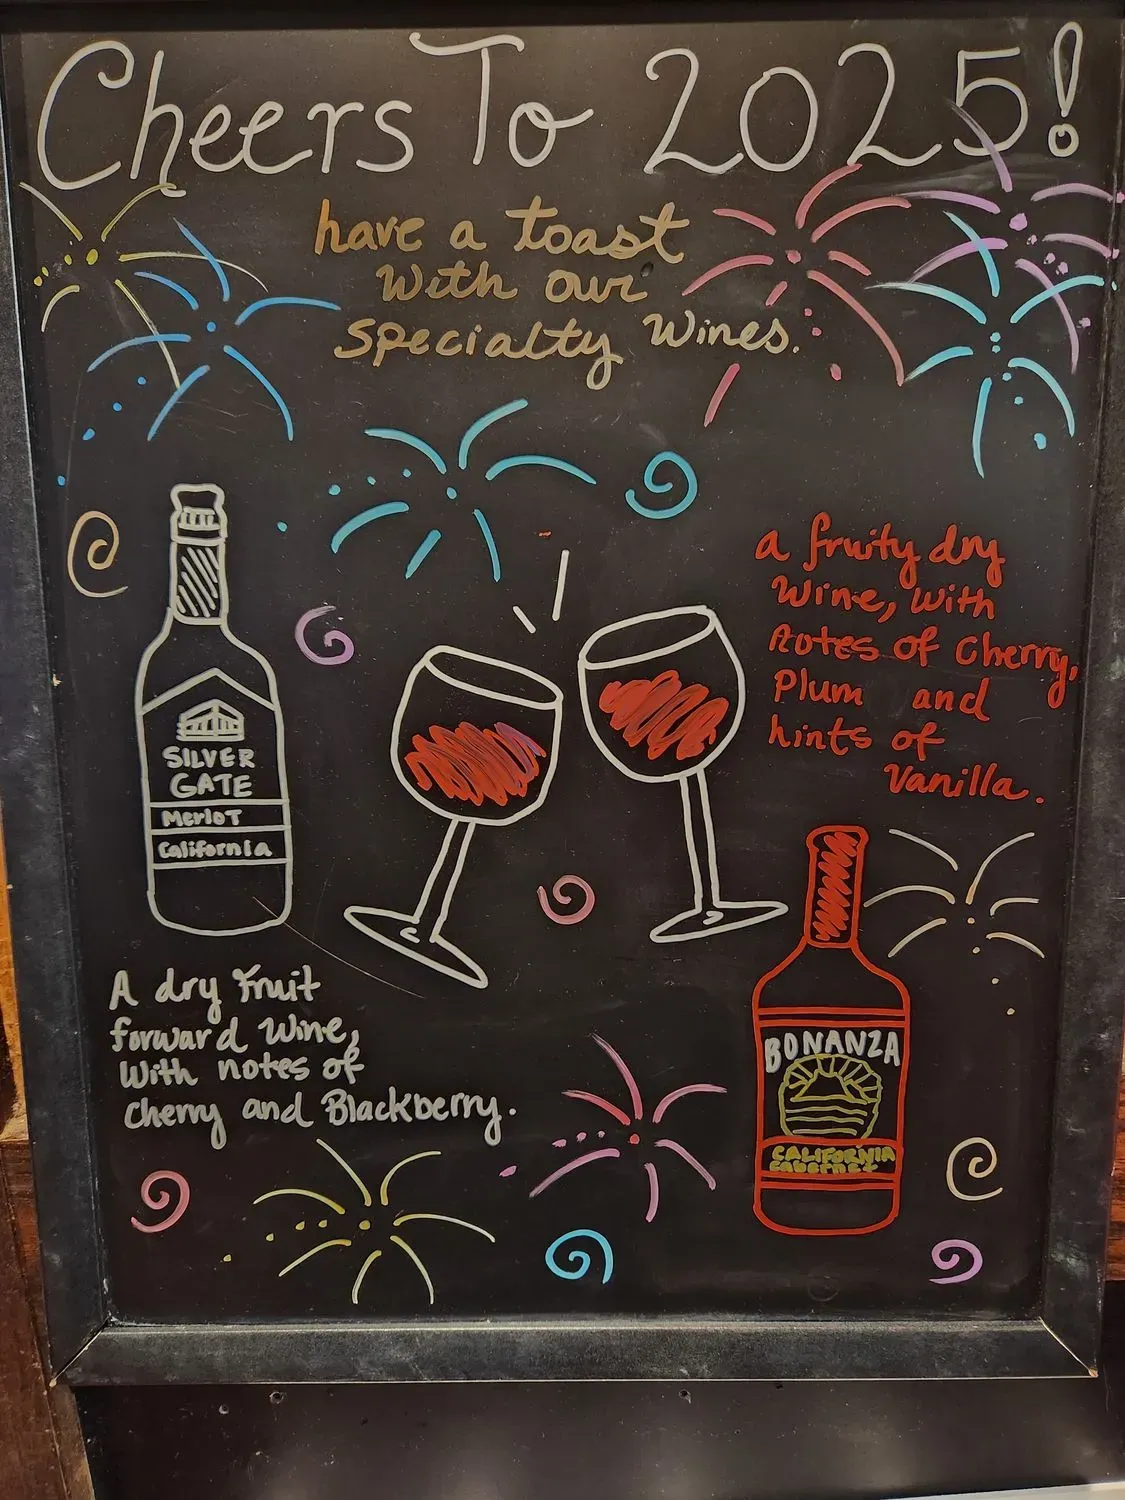 Cheers To 2025!
have a toast
with our
specialty wines.
a fruity dry
wine, with
notes of cherry,
Plum and
hints of
Vanilla.
SILVER
GATE
Merlot
California
A dry fruit
forward wine,
with notes of
cherry and Blackberry.
BONANZA
CALIFORNIA
CABERNET